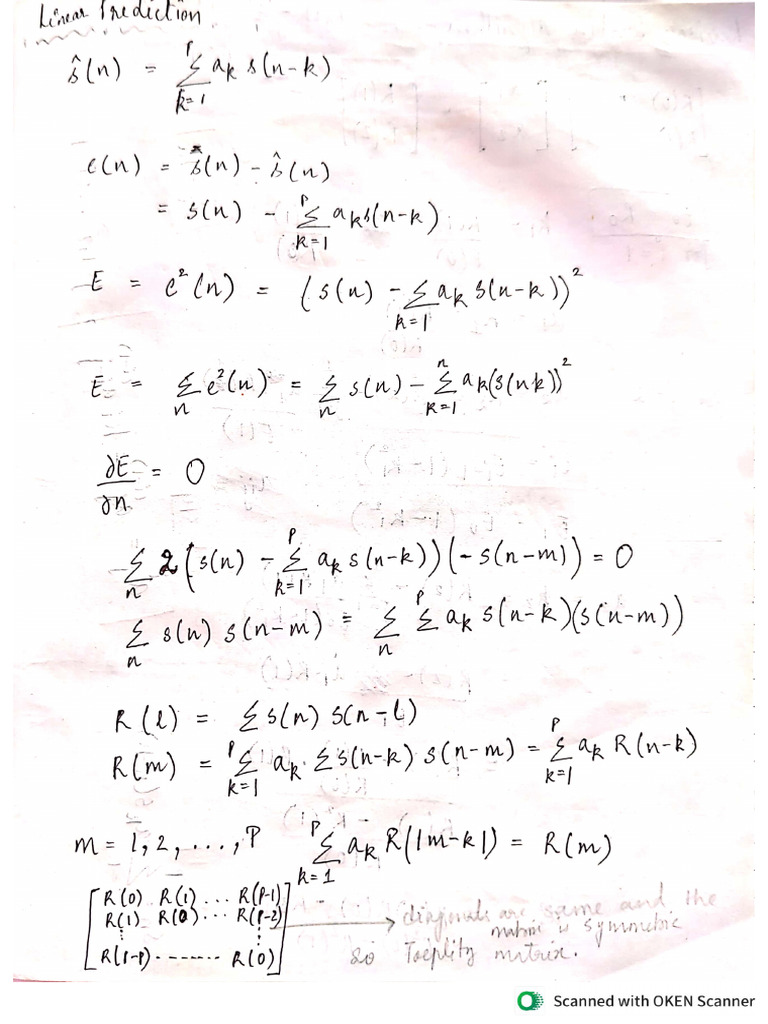 Linear Prediction
ŝ(n) = Σ_{k=1}^{P} a_k s(n-k)
e(n) = s(n) - ŝ(n)
= s(n) - Σ_{k=1}^{P} a_k s(n-k)
E = e²(n) = (s(n) - Σ_{k=1} a_k s(n-k))²
E = Σ_n e²(n) = Σ_n s(n) - Σ_{k=1}^{n} a_k (s(nk))²
∂E/∂n = 0
Σ_n 2 (s(n) - Σ_{k=1}^{P} a_k s(n-k)) (-s(n-m)) = 0
Σ_n s(n) s(n-m) = Σ_n Σ^{P} a_k s(n-k)(s(n-m))
R(l) = Σ s(n) s(n-l)
R(m) = Σ_{k=1}^{P} a_k · Σ s(n-k) s(n-m) = Σ_{k=1}^{P} a_k R(n-k)
m = 1, 2, ..., P Σ_{k=1}^{P} a_k R(|m-k|) = R(m)
R(0) R(1) ... R(P-1)
R(1) R(0) ... R(P-2)
⋮ ⋮
R(1-P) . ------ R(0)
→ diagonals are same and the
matrix is symmetric
so Toeplitz matrix.
Scanned with OKEN Scanner